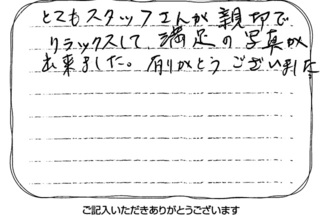 とてもスタッフさんが親切で
リラックスして、満足の写真が
出来ました。有りがとうございました
ご記入いただきありがとうございます